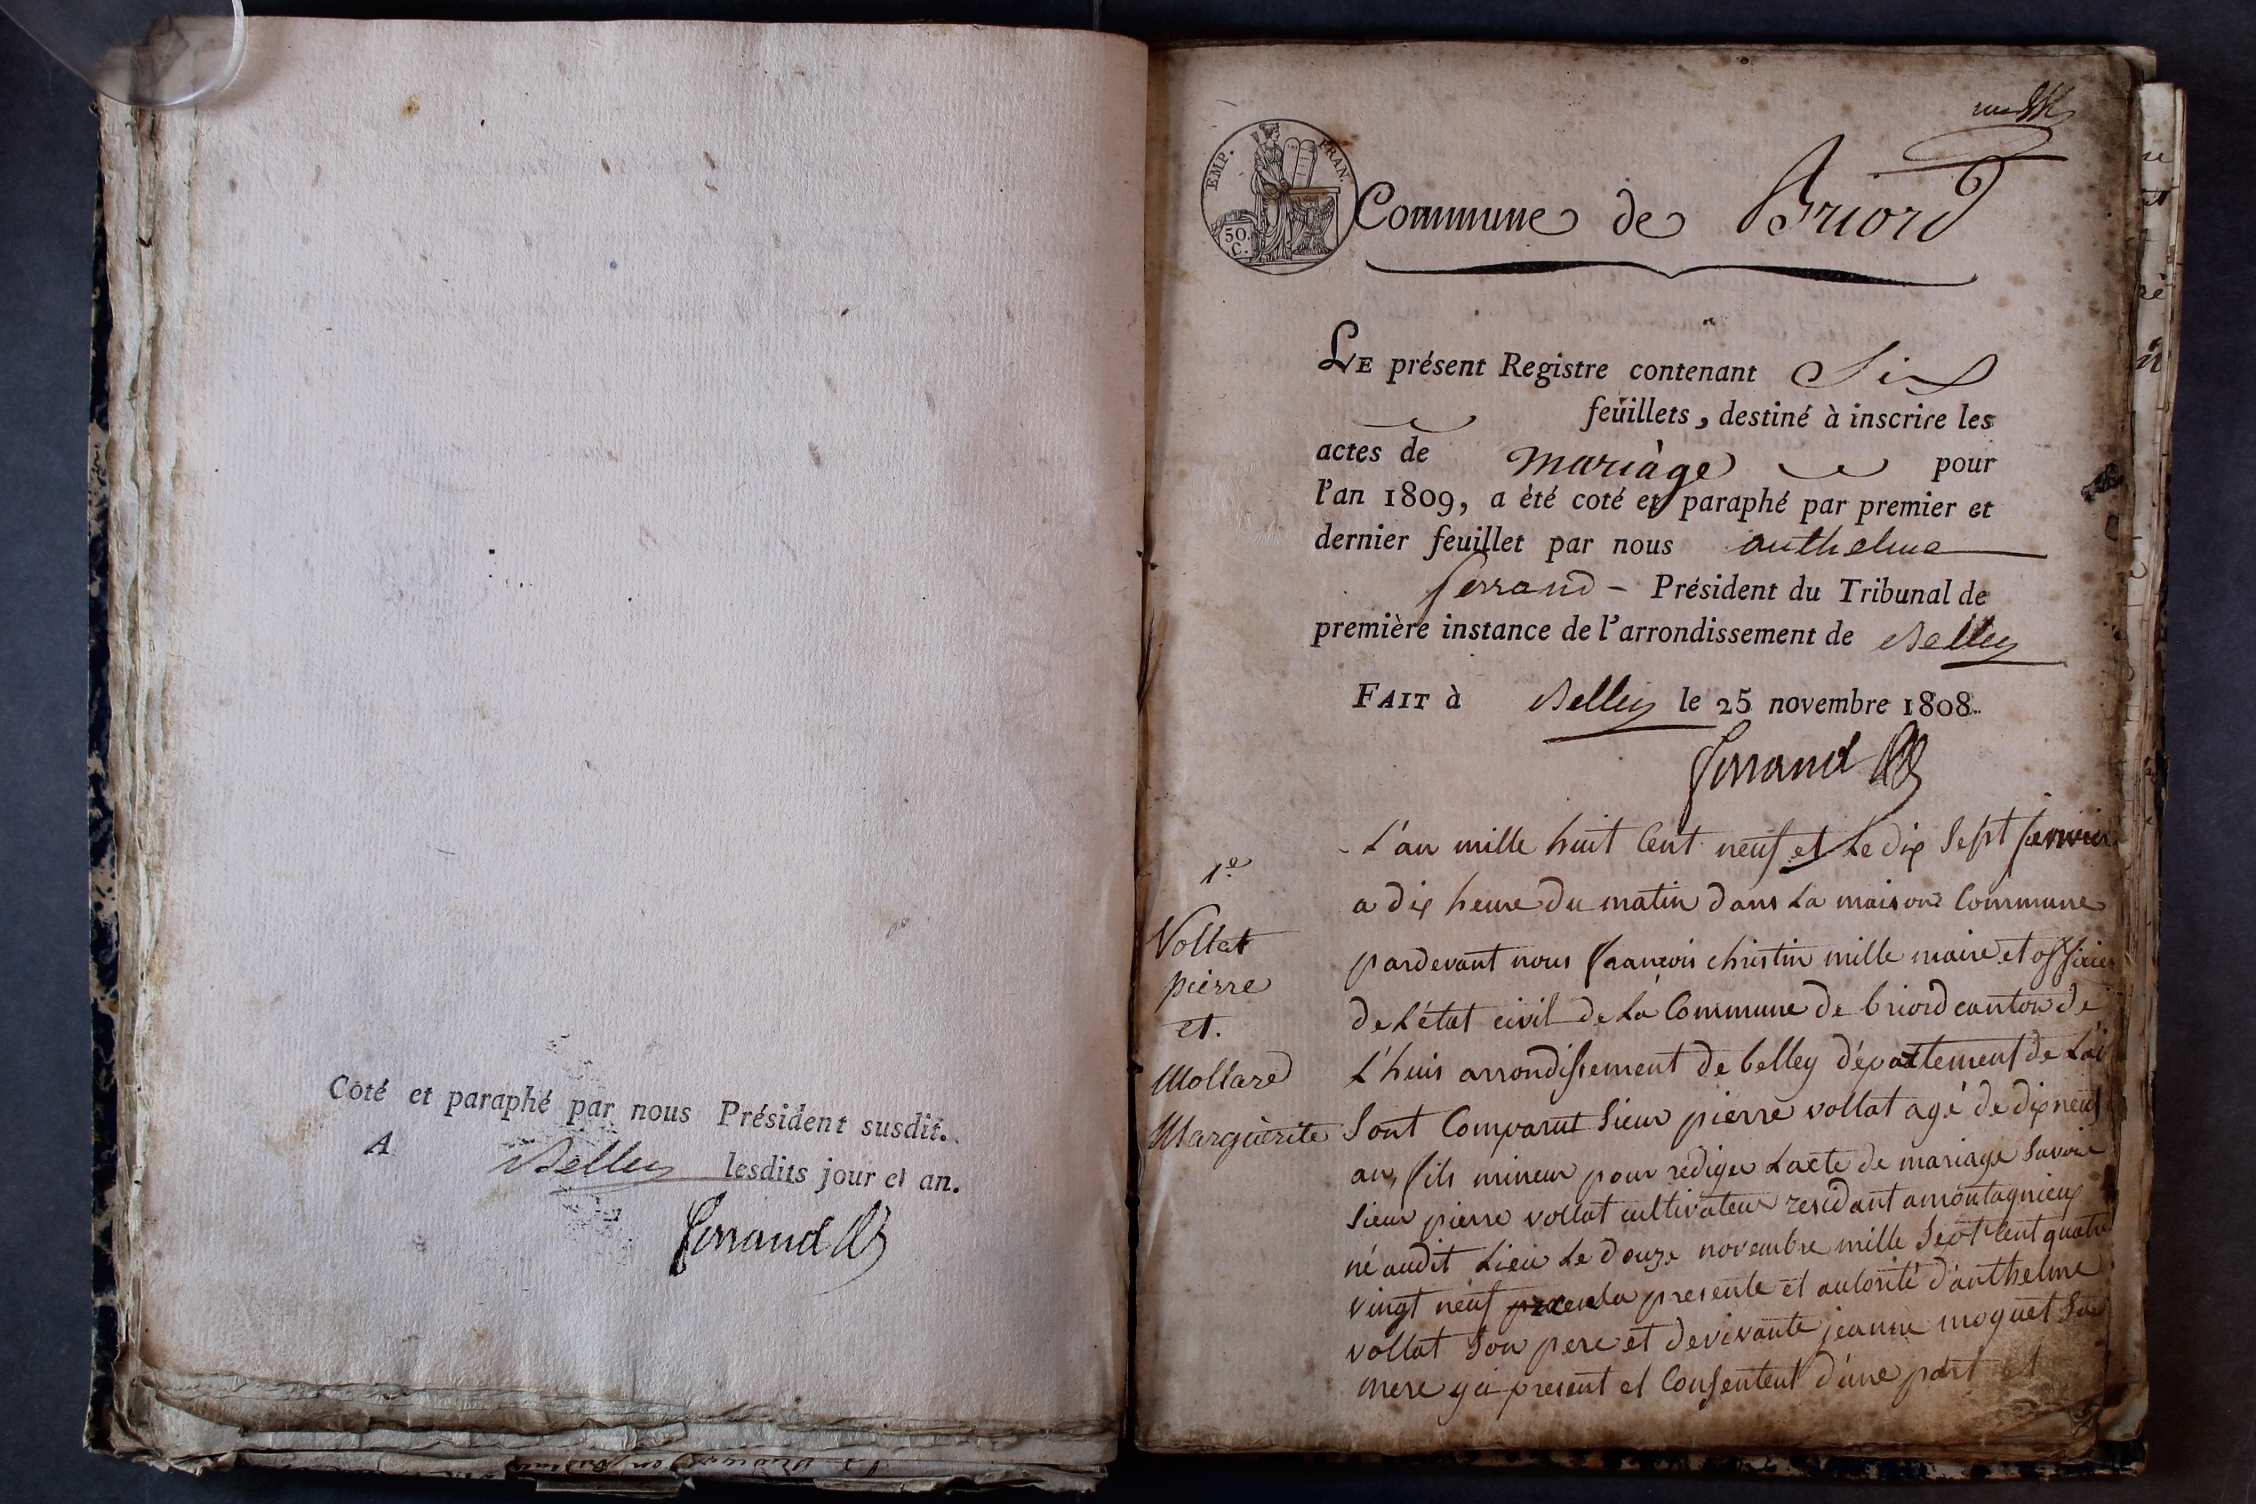 Coté et paraphé par nous Président susdit.
A Belley lesdits jour et an.
Ferrand
EMP. FRAN.
50.
C.
Commune de Briord
LE présent Registre contenant Six
feuillets, destiné à inscrire les
actes de mariàge pour
l'an 1809, a été coté et paraphé par premier et
dernier feuillet par nous anthelme
ferrand - Président du Tribunal de
première instance de l'arrondissement de Belley
FAIT à Belley le 25 novembre 1808.
Ferrand
1e
Vollat
pierre
et.
Mollard
Marguèrite
L'an mille huit Cent neuf et Le dix Sept janvier
a dix heure du matin dans La maison Commune
pardevant nous françois christin mille maire et officier
de L'état civil de La Commune de briord canton de
L'huis arrondissement de belley département de L'ai
Sont Comparut Sieur pierre vollat agé de dixneuf
an, fils mineur pour rediger Lacte de mariage Savoir
Sieur pierre vollat cultivateur residant amontagnieux
né audit Lieu Le douze novembre mille Sept Cent quatre
vingt neuf presente et autorité d'anthelme
vollat Son pere et de vivante jeanne moquet Sa
mere y ci present et Consentent d'une part et